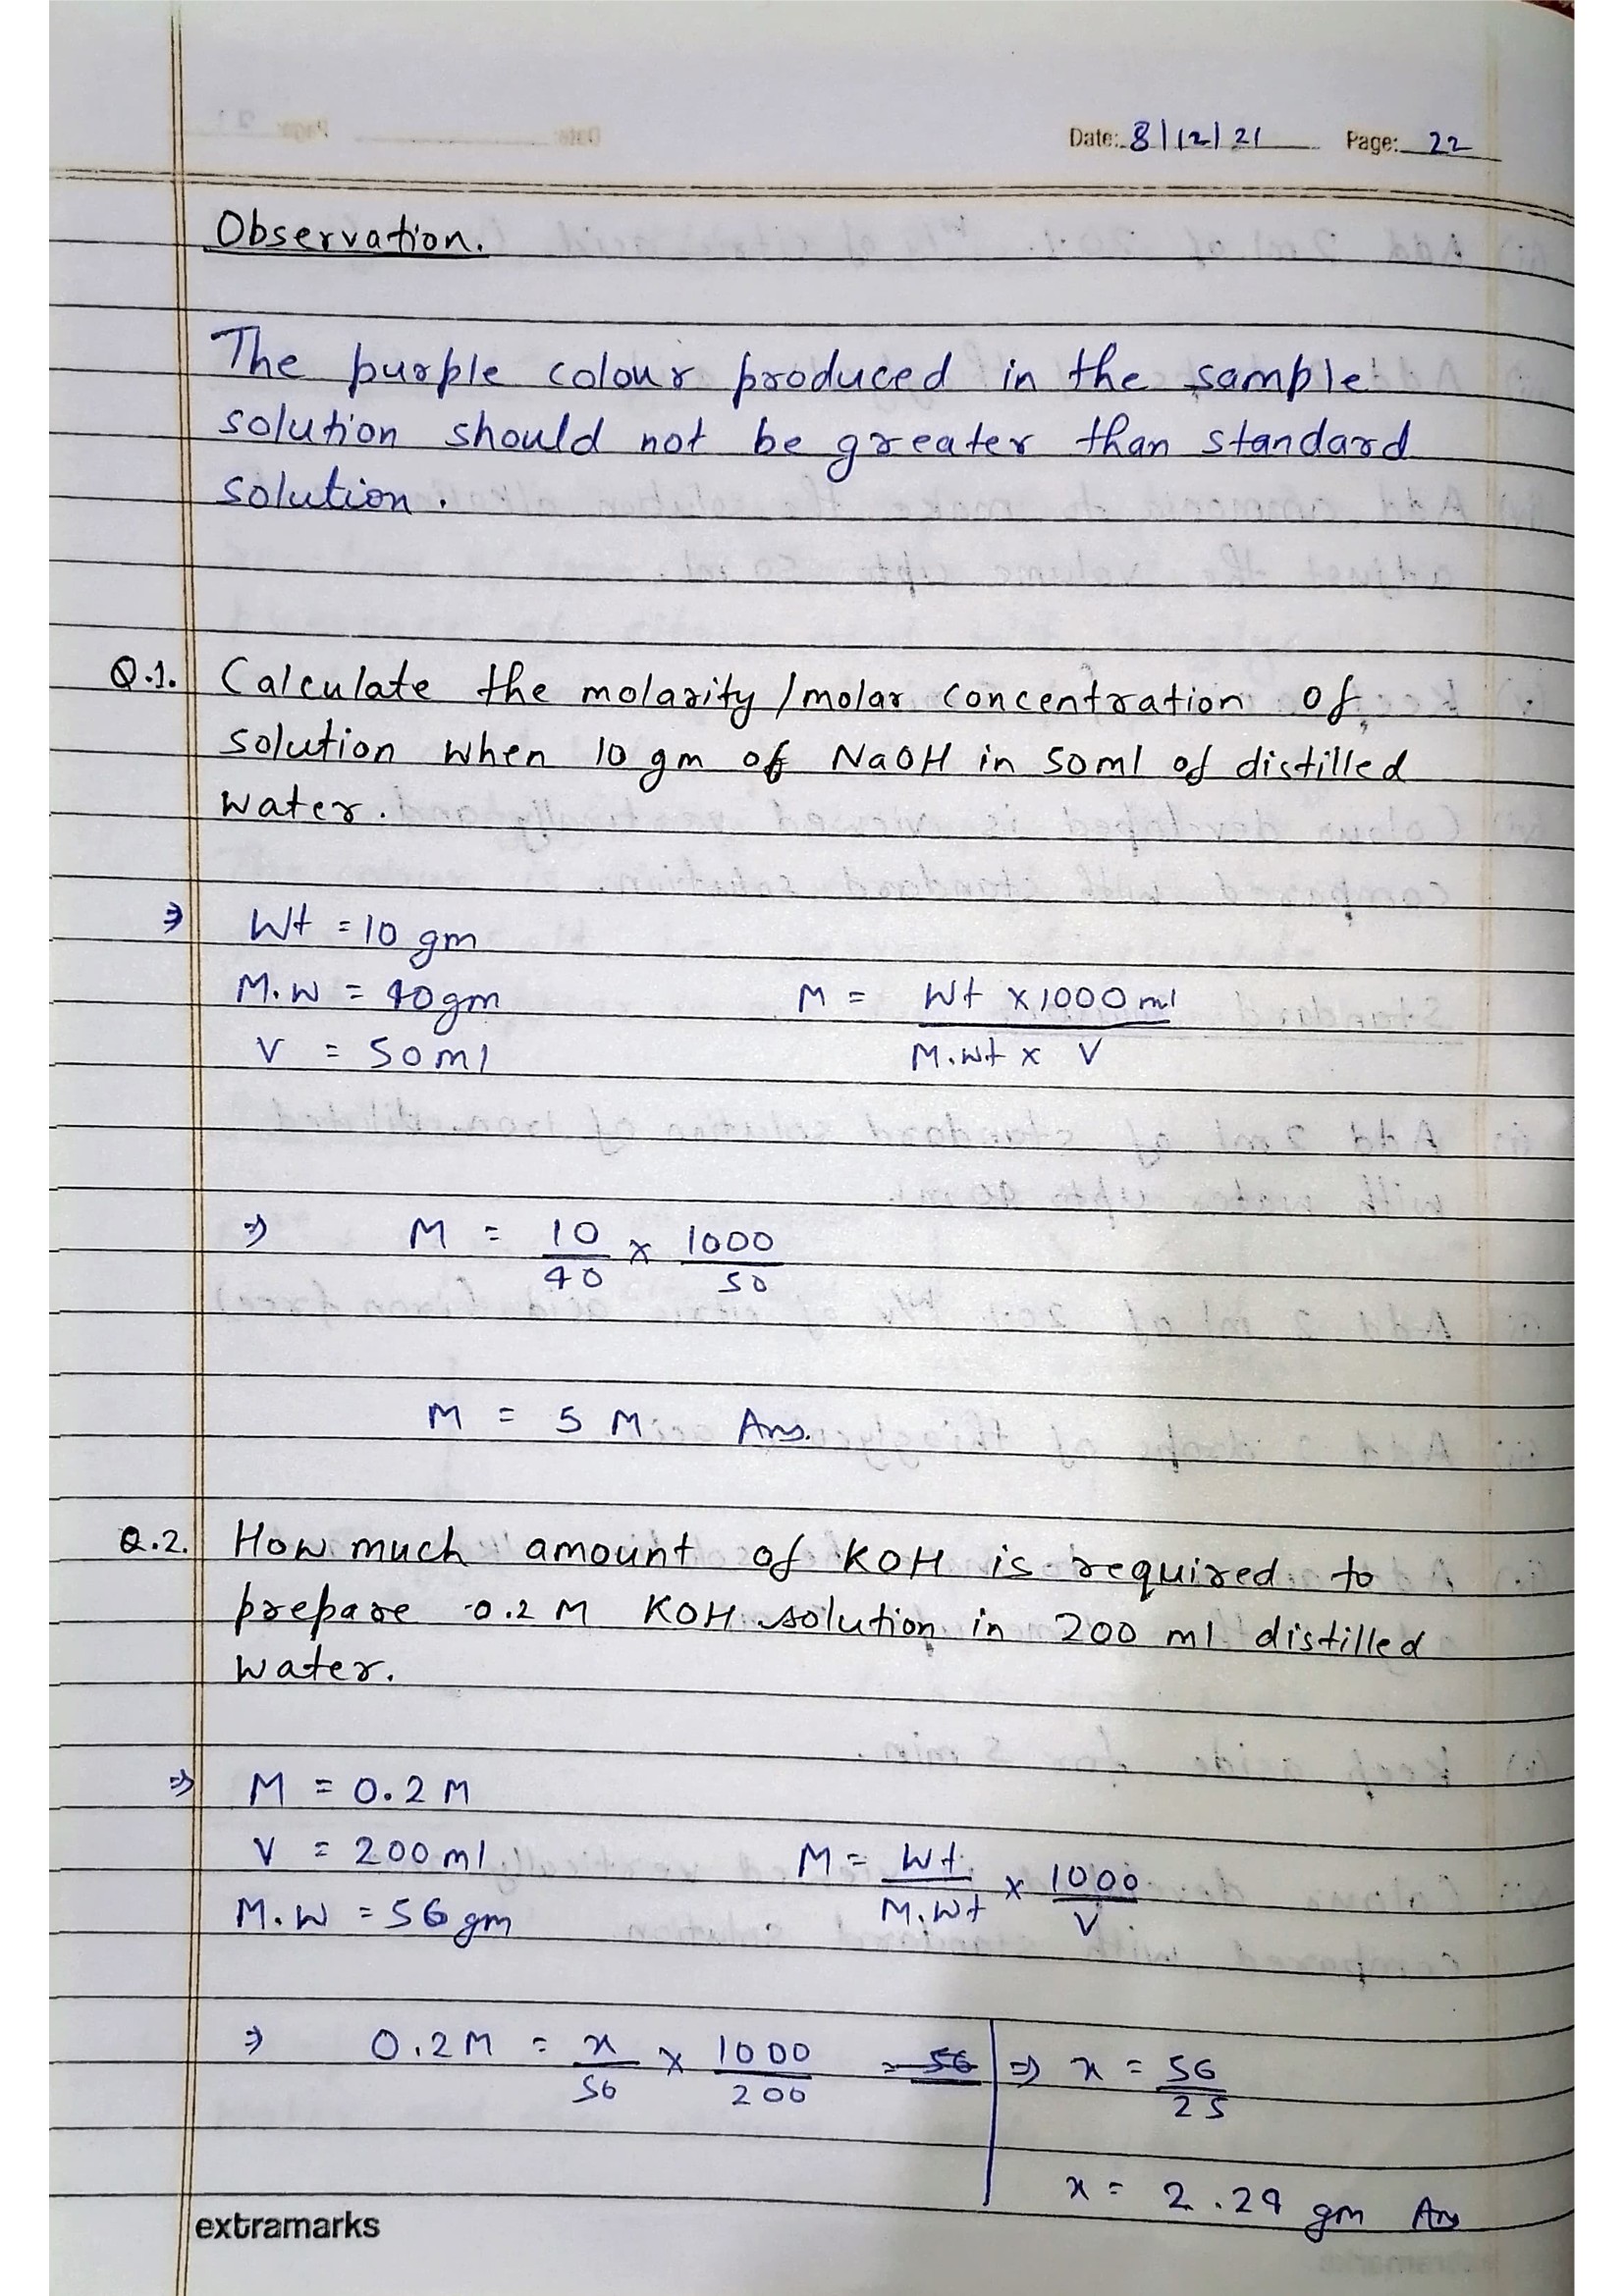 Date: 8/12/21 Page: 22
Observation.
The purple colour produced in the sample
solution should not be greater than standard
solution.
Q.1. Calculate the molarity/molar concentration of
solution when 10 gm of NaOH in 50ml of distilled
water.
⇒ Wt = 10 gm
M.W = 40gm M = Wt × 1000 ml
V = 50ml M.Wt × V
⇒ M = 10/40 × 1000/50
M = 5 M Ans.
Q.2. How much amount of KOH is required to
prepare 0.2 M KOH solution in 200 ml distilled
water.
⇒ M = 0.2 M
V = 200ml M = Wt/M.Wt × 1000/V
M.W = 56 gm
⇒ 0.2M = x/56 × 1000/200 = 56 ⇒ x = 56/25
x = 2.24 gm Ans
extramarks